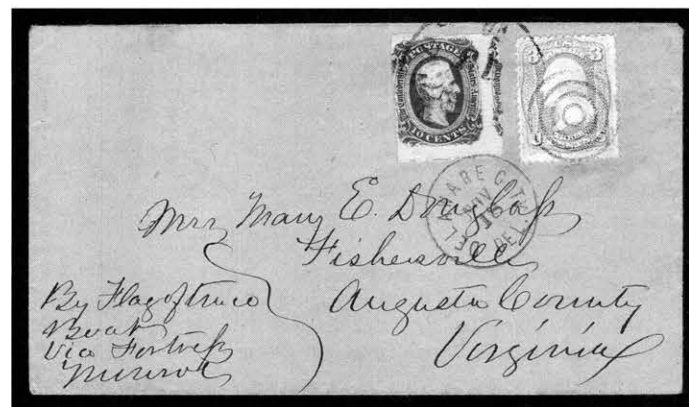 POSTAGE
10 CENTS
U.S.
3 3
DELAWARE CITY
NOV
16
DEL.
Mrs Mary E. Douglass
Fishersville
Augusta County
Virginia
By Flag of truce
Boat
Via Fortress
Munroe